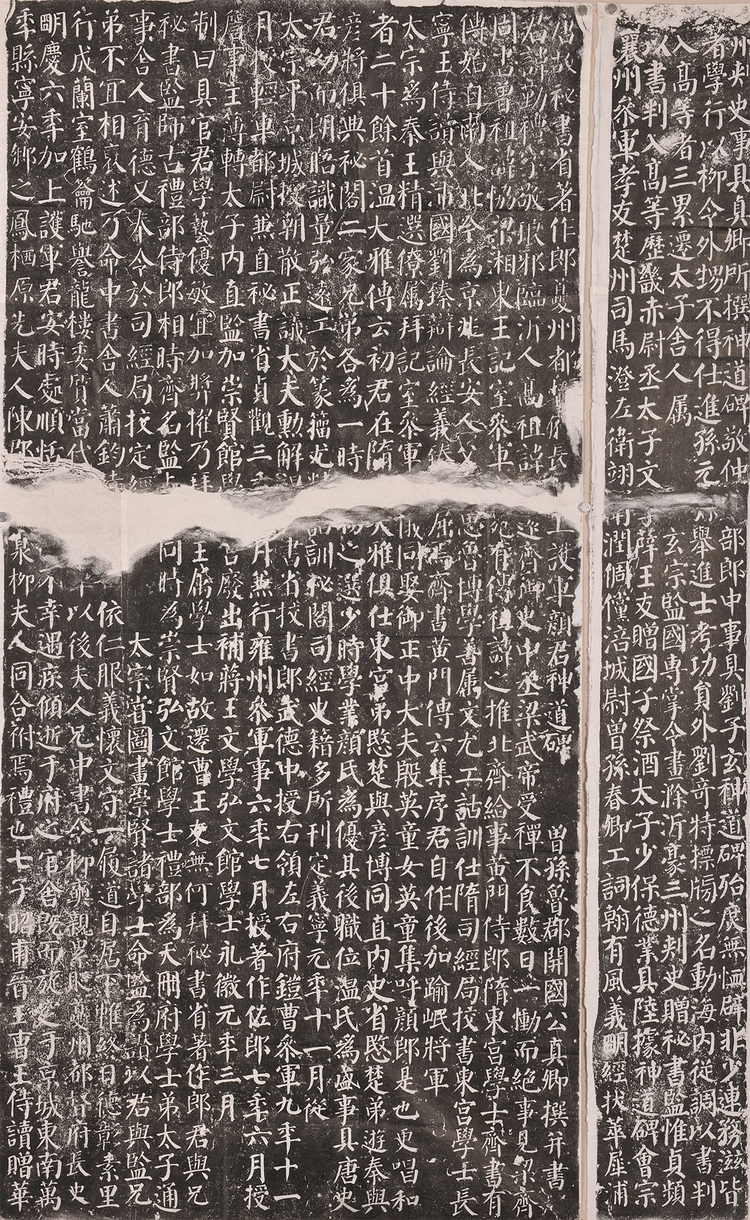 州刺史事具真卿所撰神道碑敬仲部郎中事具劉子玄神道碑殆庶無恤辟非少連務滋皆
者學行以柳令外甥不得仕進孫元孫舉進士考功員外劉奇特標牓之名動海內從調以書判
入高等者三累遷太子舍人屬 玄宗監國專掌令畫滁沂豪三州刺史贈秘書監惟貞頻
以書判入高等歷畿赤尉丞太子文學薛王友贈國子祭酒太子少保德業具陸據神道碑會宗
襄州參軍孝友楚州司馬澄左衛翊衛潤倜儻涪城尉曾孫春卿工詞翰有風義明經拔萃犀浦
唐故秘書省著作郎夔州都督府長上護軍顏君神道碑 曾孫魯郡開國公真卿撰并書
君諱勤禮字敬琅邪臨沂人高祖諱遠齊御史中丞梁武帝受禪不食數日一慟而絕事見梁齊
周書曾祖諱協梁湘東王記室參軍苑有傳祖諱之推北齊給事黃門侍郎隋東宮學士齊書有
傳始自南入北今為京兆長安人父思魯博學善屬文尤工詁訓仕隋司經局校書東宮學士長
寧王侍讀與沛國劉臻辯論經義臻屈焉齊書黃門傳云集序君自作後加踰岷將軍
太宗為秦王精選僚屬拜記室參軍儀同娶御正中大夫殷英童女英童集呼顏郎是也更唱和
者二十餘首溫大雅傳云初君在隋大雅俱仕東宮弟愍楚與彥博同直內史省愍楚弟遊秦與
彥將俱典秘閣二家兄弟各為一時物之選少時學業顏氏為優其後職位溫氏為盛事具唐史
君幼而朗晤識量弘遠工於篆籀尤精詁訓秘閣司經史籍多所刊定義寧元年十一月從
太宗平京城授朝散正議大夫勳解褐書省校書郎武德中授右領左右府鎧曹參軍九年十一
月授輕車都尉兼直秘書省貞觀三年月兼行雍州參軍事六年七月授著作佐郎七年六月授
詹事主簿轉太子內直監加崇賢館學宮廢出補蔣王文學弘文館學士永徽元年三月
制曰具官君學藝優敏宜加獎擢乃拜王屬學士如故遷曹王友無何拜秘書省著作郎君與兄
秘書監師古禮部侍郎相時齊名監與同時為崇賢弘文館學士禮部為天冊府學士弟太子通
事舍人育德又奉令於司經局校定經 太宗嘗圖畫崇賢諸學士命監為讚以君與監兄
弟不宜相褒述乃命中書舍人蕭鈞特依仁服義懷文守一履道自居下帷終日德彰素里
行成蘭室鶴籥馳譽龍樓委質當代年以後夫人兄中書令柳奭親累貶夔州都督府長史
明慶六年加上護軍君安時處順恬不幸遇疾傾逝于府之官舍既而旋窆于京城東南萬
年縣寧安鄉之鳳栖原先夫人陳郡泉柳夫人同合祔焉禮也七子昭甫晉王曹王侍讀贈華